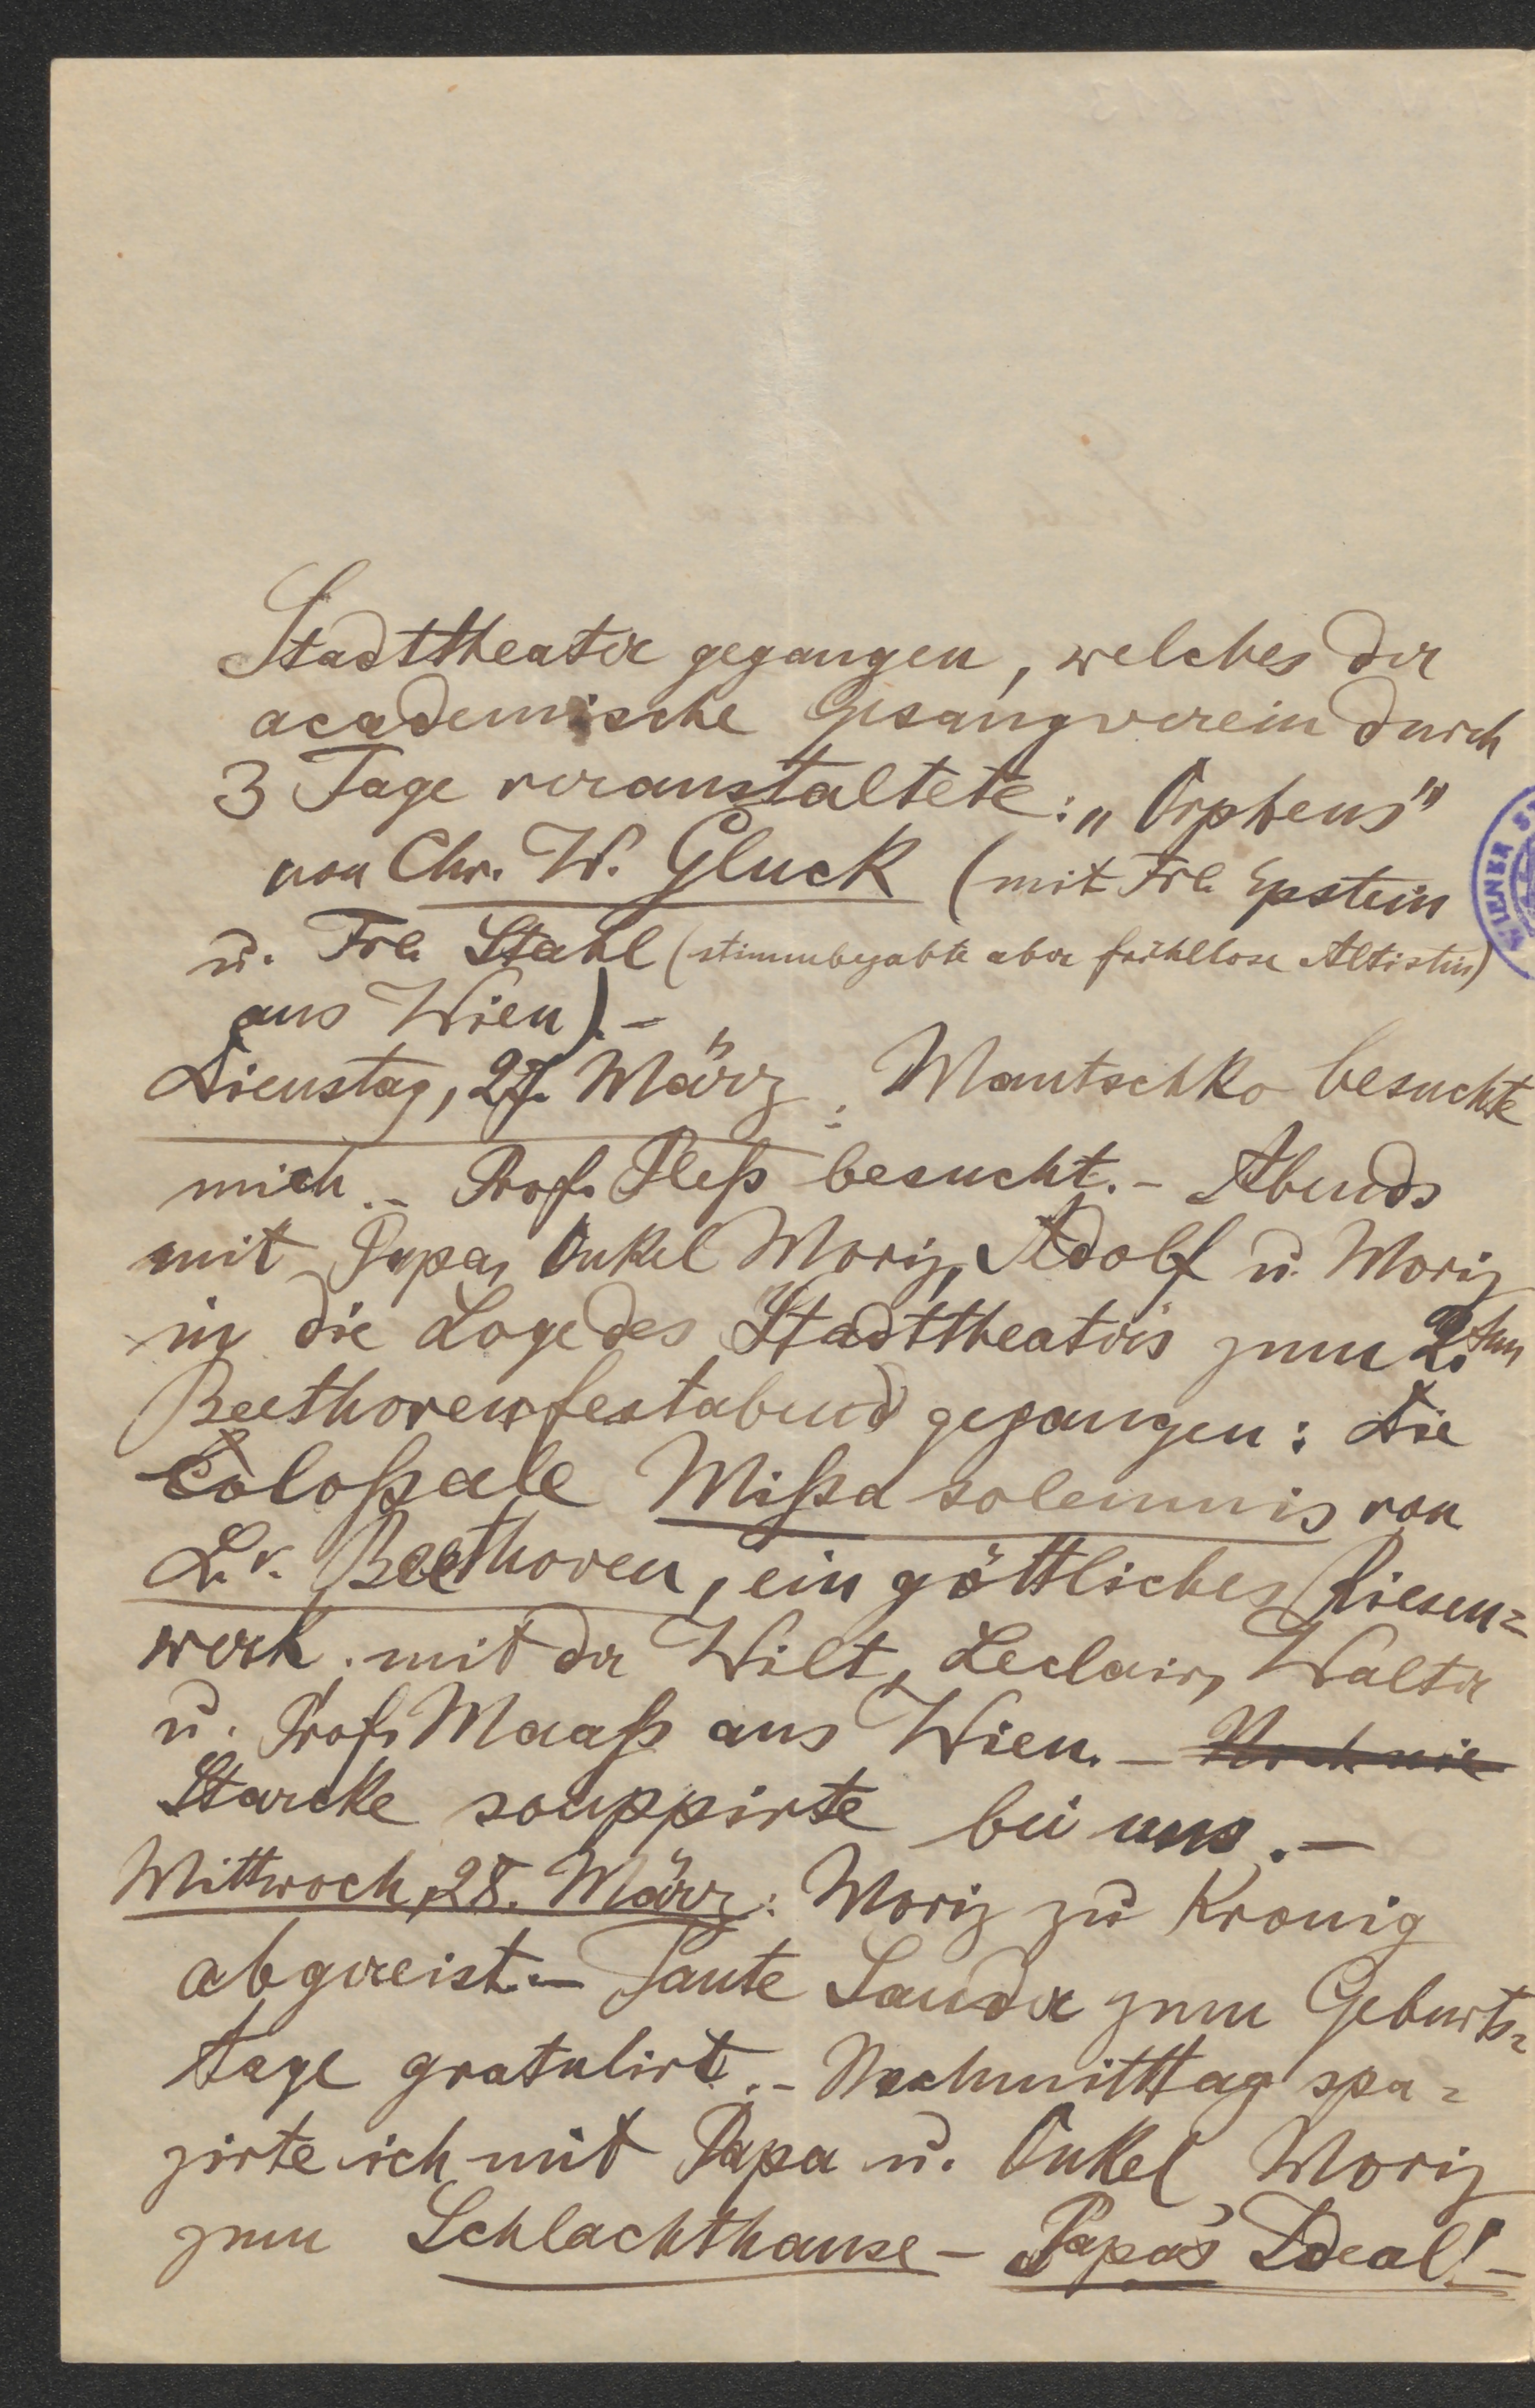 Stadttheater gegangen, welches der
academische Gesangverein durch
3 Tage veranstaltete: „Orpheus"
von Chr. W. Gluck (mit Frl. Epstein
u. Frl. Stahl (stimmbegabte aber fühllose Altistin)
aus Wien). –
Dienstag, 27. März: Mantschko besuchte
mich. – Prof. Pleß besucht. – Abends
mit Papa, Onkel Moriz, Adolf u. Moriz
in die Loge des Stadttheaters zum 2.ten
Beethovenfestabend gegangen: Die
Coloßale Mißa solemnis von
L. v. Beethoven, ein göttliches Riesen=
werk. mit der Wilt, Leclair, Walter
u. Prof. Maaß aus Wien. – Noch nie
Starcke souppirte bei uns. –
Mittwoch, 28. März: Moriz zu Kronig
abgereist. – Tante Sander zum Geburts=
tage gratulirt. – Nachmitttag spa=
zirte ich mit Papa u. Onkel Moriz
zum Schlachthause – Papa's Ideal! –
WIENER S